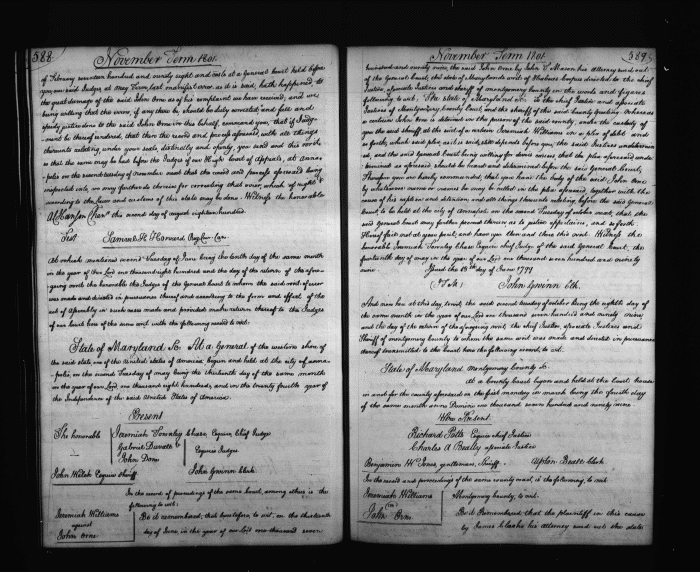 588
November Term 1801.
of February seventeen hundred and ninety eight and note at a General Court held before
you our said Judges at May Term last manifest error as it is said, hath happened to
the great damage of the said John Orme as of his complaint we have received, and we
being willing that the error, if any there be, should be duly corrected and full and
speedy justice done to the said John Orme in this behalf, command you, that if Judge-
ment be thereof rendered, that then the record and process aforesaid, with all things
thereunto relating under your seals, distinctly and openly, you send and this writ
so that the same may be had before the Judges of our High Court of Appeals, at Anna-
polis on the second tuesday of november next that the record and process aforesaid being
inspected, we may further do therein for correcting that error, which of right &
according to the laws and customs of this state may be done. Witness the honorable
A. C. Hanson Chanr this second day of august eighteen hundred.
Test Samuel H. Howard Reg. Cur. Can
At which
in the year of our Lord one thousand eight hundred and the day of the return of the afore-
going writ the honorable the Judges of the General Court to whom the said writ of error
was made and directed in pursuance thereof and according to the form and effect of the
act of Assembly in such case made and provided make return thereof to the Judges
of our Court here of the same writ with the following record to wit:
State of Maryland Sc. At a General of the western shore of
the said state, one of the United States of America begun and held at the city of anna-
polis, on the second Tuesday of may being the thirteenth day of the same month
in the year of our Lord one thousand eight hundred, and in the twenty fourth year of
the Independence of the said United States of America.
Present
The honorable Jeremiah Townley Chase, Esquire, Chief Judge
Gabriel Duvall &
John Done Esquires Judges
John Welch Esquire Sheriff John Gwinn Clerk
In the record of proceedings of the same Court, among others is the
following to wit:
Jeremiah Williams
against
John Orme
Be it remembered, that heretofore, to wit, on the thirteenth
day of June, in the year of our Lord one thousand seven
November Term 1801.
589
hundred and ninety nine, the said John Orme by John T. Mason his attorney sued out
of the General Court, the state of Marylands writ of Habeas Corpus directed to the chief
Justice, associate Justices and Sheriff of montgomery County in the words and figures
following to wit; The State of Maryland Sc. to the chief Justice and associate
Justices of Montgomery County Court and the sheriff of the said County Greeting Whereas
a certain John Orme is detained in the prison of the said county, under the custody of
you the said sheriff at the suit of a certain Jeremiah Williams in a plea of debt and
so forth, which said plea, as is said, still depends before you, the said Justices undetermin-
ed, and the said General Court being willing for divers causes, that the plea aforesaid unde-
termined as aforesaid should be heard and determined before the said General Court,
Therefore you are hereby commanded, that you have the body of the said John Orme
by whatsoever name or names he may be called in the plea aforesaid, together with the
cause of his caption and detention, and all things thereunto relating before the said General
Court, to be held at the city of Annapolis on the second Tuesday of october next, that the
said General Court may further proceed therein as to justice appertains, and so forth.
Hereof fail not at your peril, and have you then and there this writ. Witness the
honorable Jeremiah Townley Chase Esquire chief Judge of the said General Court, the
fourteenth day of may in the year of our Lord one thousand seven hundred and ninety
nine. Issued the 13th day of June 1799
John Gwinn Clk.
And now at this day, to wit, the said second tuesday of october being the eighth day of
the same month in the year of our Lord one thousand seven hundred and ninety nine
and the day of the return of the foregoing writ the chief Justice, associate Justices and
Sheriff of montgomery County to whom the said writ was made and directed in pursuance
thereof transmitted to the Court here the following record, to wit.
State of Maryland Montgomery County Sc.
At a County Court begun and held at the Court house
in and for the county aforesaid on the first monday in march being the fourth day
of the same month anno Domini one thousand seven hundred and ninety nine.
Were Present.
Richard Potts Esquire chief Justice
Charles A Beatty associate Justice
Benjamin W Jones, gentleman, Sheriff. Upton Beall Clerk
In the record and proceedings of the same county court, is the following, to wit
Jeremiah Williams
(vs)
John Orme
Montgomery County, to wit.
Be it Remembered that the plaintiff in this cause
by James Clarke his attorney sued out the state